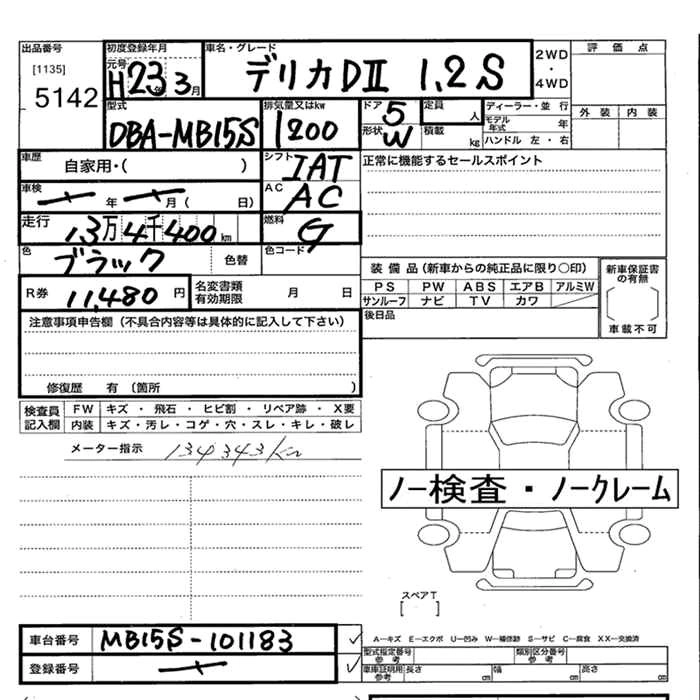 出品番号 初度登録年月 車名・グレード 2WD・4WD 評価点
[1135] 元号 H23年 3月 デリカDⅡ 1.2S
5142
型式 排気量又はkw ドア 5 定員 人 ディーラー・並行 外装 内装
DBA-MB15S 1200 形状 W 積載 kg モデル年式 年
ハンドル 左・右
車歴 自家用・( ) シフト IAT 正常に機能するセールスポイント
車検 年 月( 日) AC AC
走行 13万4千400km 燃料 G
色 ブラック 色替 色コード
装備品(新車からの純正品に限り○印) 新車保証書の有無
R券 11,480円 名変書類有効期限 月 日 PS PW ABS エアB アルミW
サンルーフ ナビ TV カワ 車載不可
注意事項申告欄(不具合内容等は具体的に記入して下さい) 後日品
修復歴 有(箇所
検査員記入欄 FW キズ・飛石・ヒビ割・リペア跡・X要
内装 キズ・汚レ・コゲ・穴・スレ・キレ・破レ
メーター指示 134343km
ノー検査・ノークレーム
スペアT
[ ]
車台番号 MB15S-101183 A-キズ E-エクボ U-凹み W-補修跡 S-サビ C-腐食 XX-交換済
登録番号 型式指定番号参考 類別区分番号参考
車庫証明用参考 長さ cm 幅 cm 高さ cm